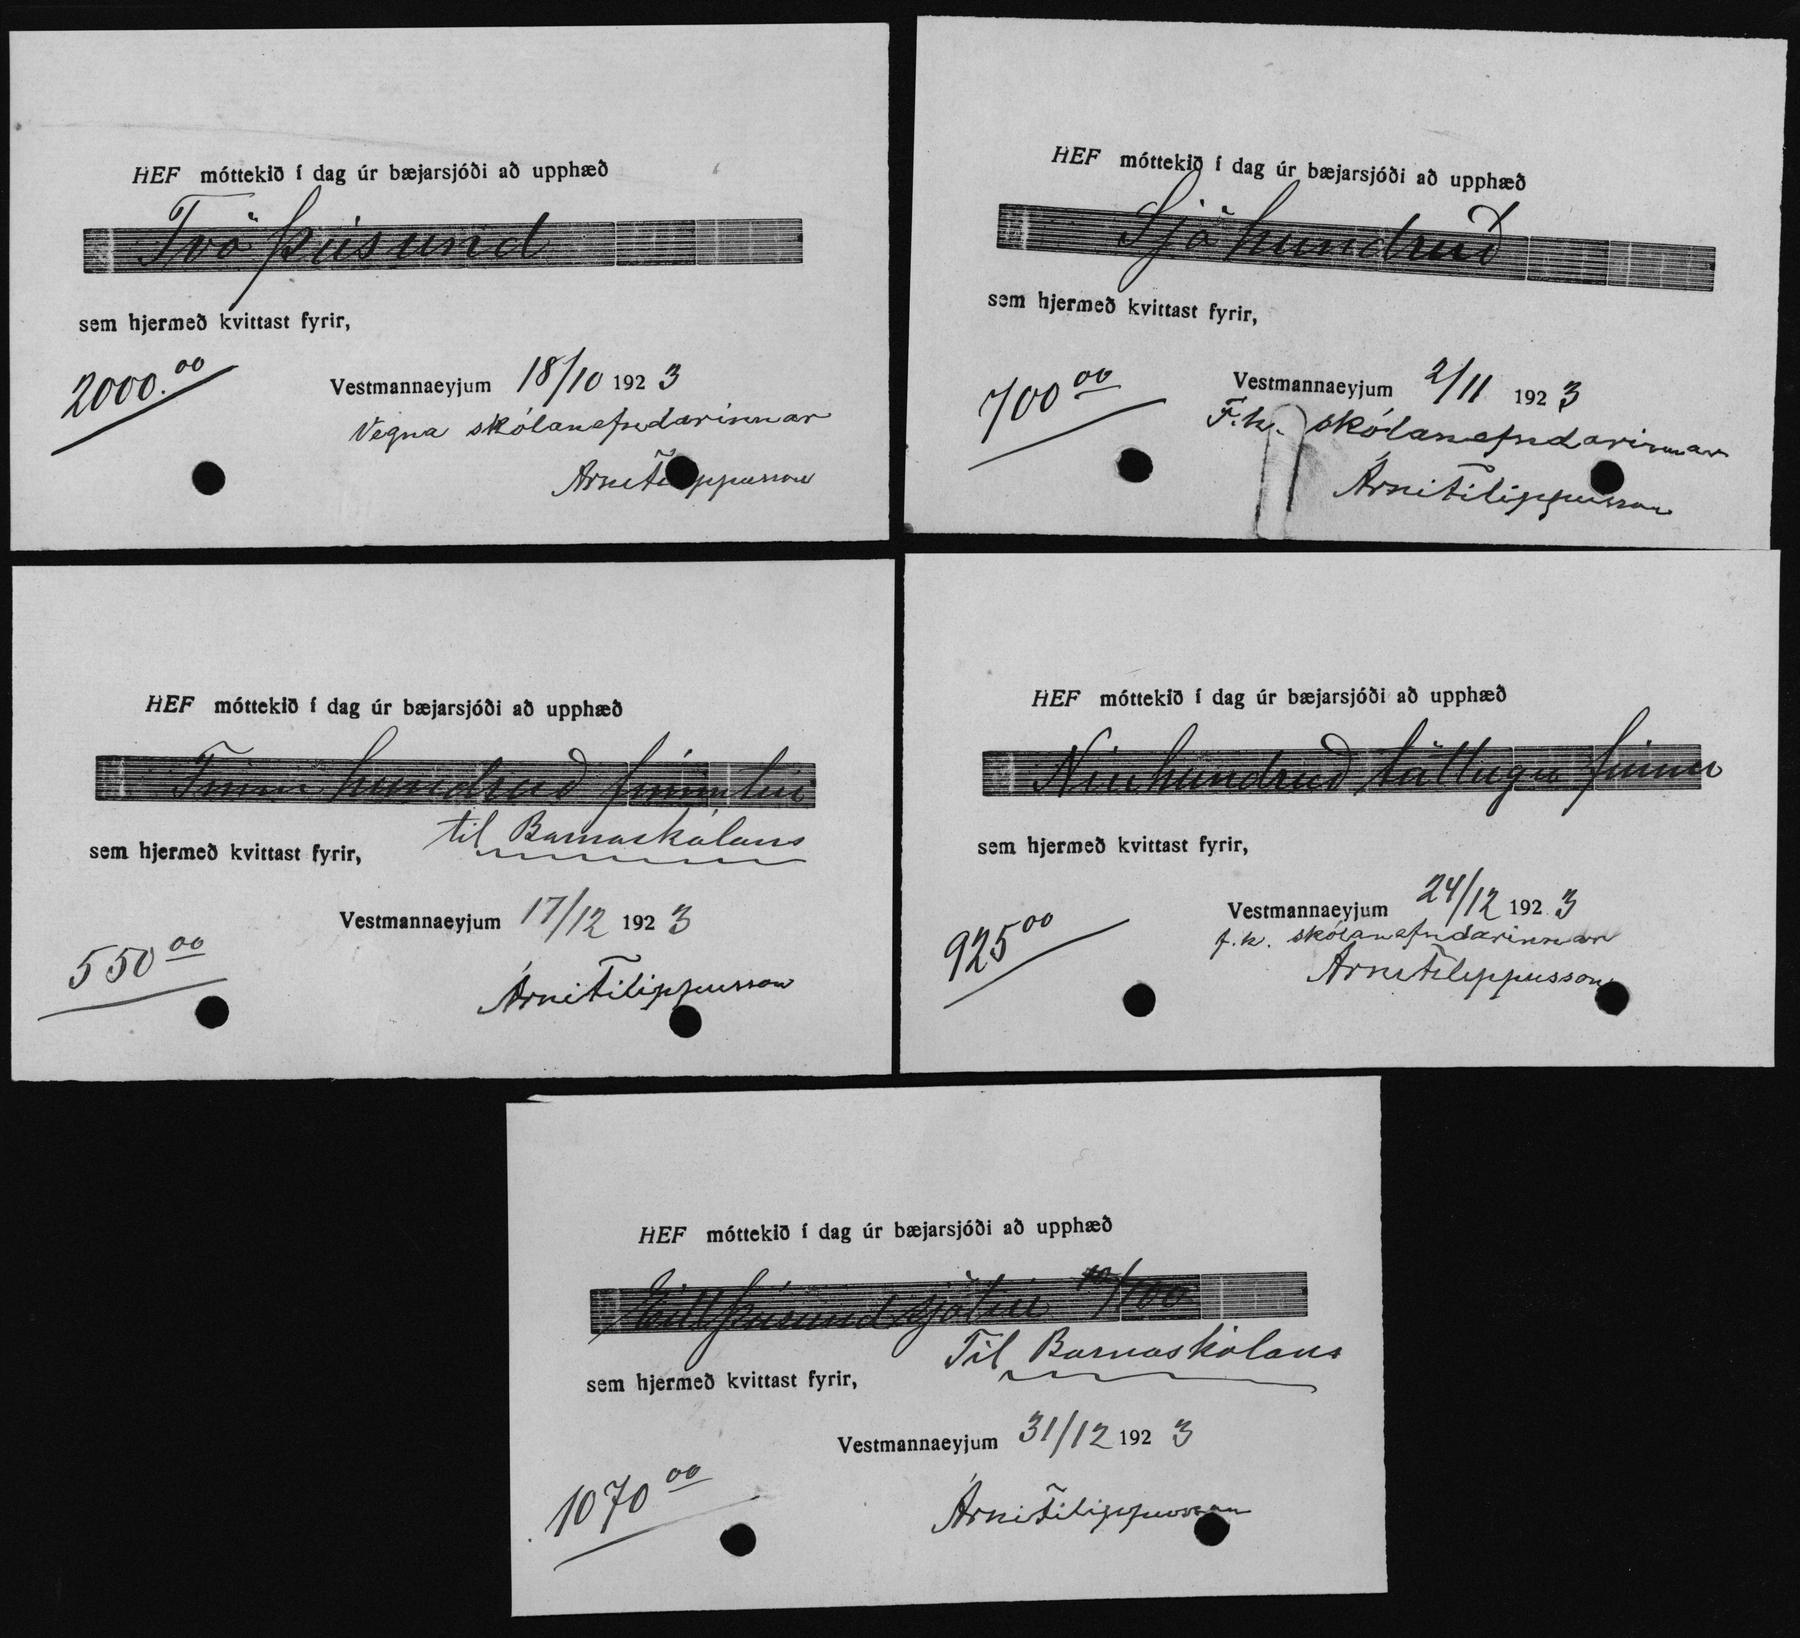 HEF móttekið í dag úr bæjarsjóði að upphæð
Tvö þúsund
sem hjermeð kvittast fyrir,
2000.00
Vestmannaeyjum 18/10 1923
Vegna skólanefndarinnar
Árni Filippusson
HEF móttekið í dag úr bæjarsjóði að upphæð
Sjö hundruð
sem hjermeð kvittast fyrir,
700 00
Vestmannaeyjum 2/11 1923
F.h. skólanefndarinnar
Árni Filippusson
HEF móttekið í dag úr bæjarsjóði að upphæð
Fimm hundruð fimmtíu
til Barnaskólans
sem hjermeð kvittast fyrir,
Vestmannaeyjum 17/12 1923
550 00
Árni Filippusson
HEF móttekið í dag úr bæjarsjóði að upphæð
Níu hundruð tuttugu fimm
sem hjermeð kvittast fyrir,
Vestmannaeyjum 24/12 1923
925 00
f.h. skólanefndarinnar
Árni Filippusson
HEF móttekið í dag úr bæjarsjóði að upphæð
Eitt þúsund sjötíu 00/100
Til Barnaskólans
sem hjermeð kvittast fyrir,
Vestmannaeyjum 31/12 1923
1070 00
Árni Filippusson